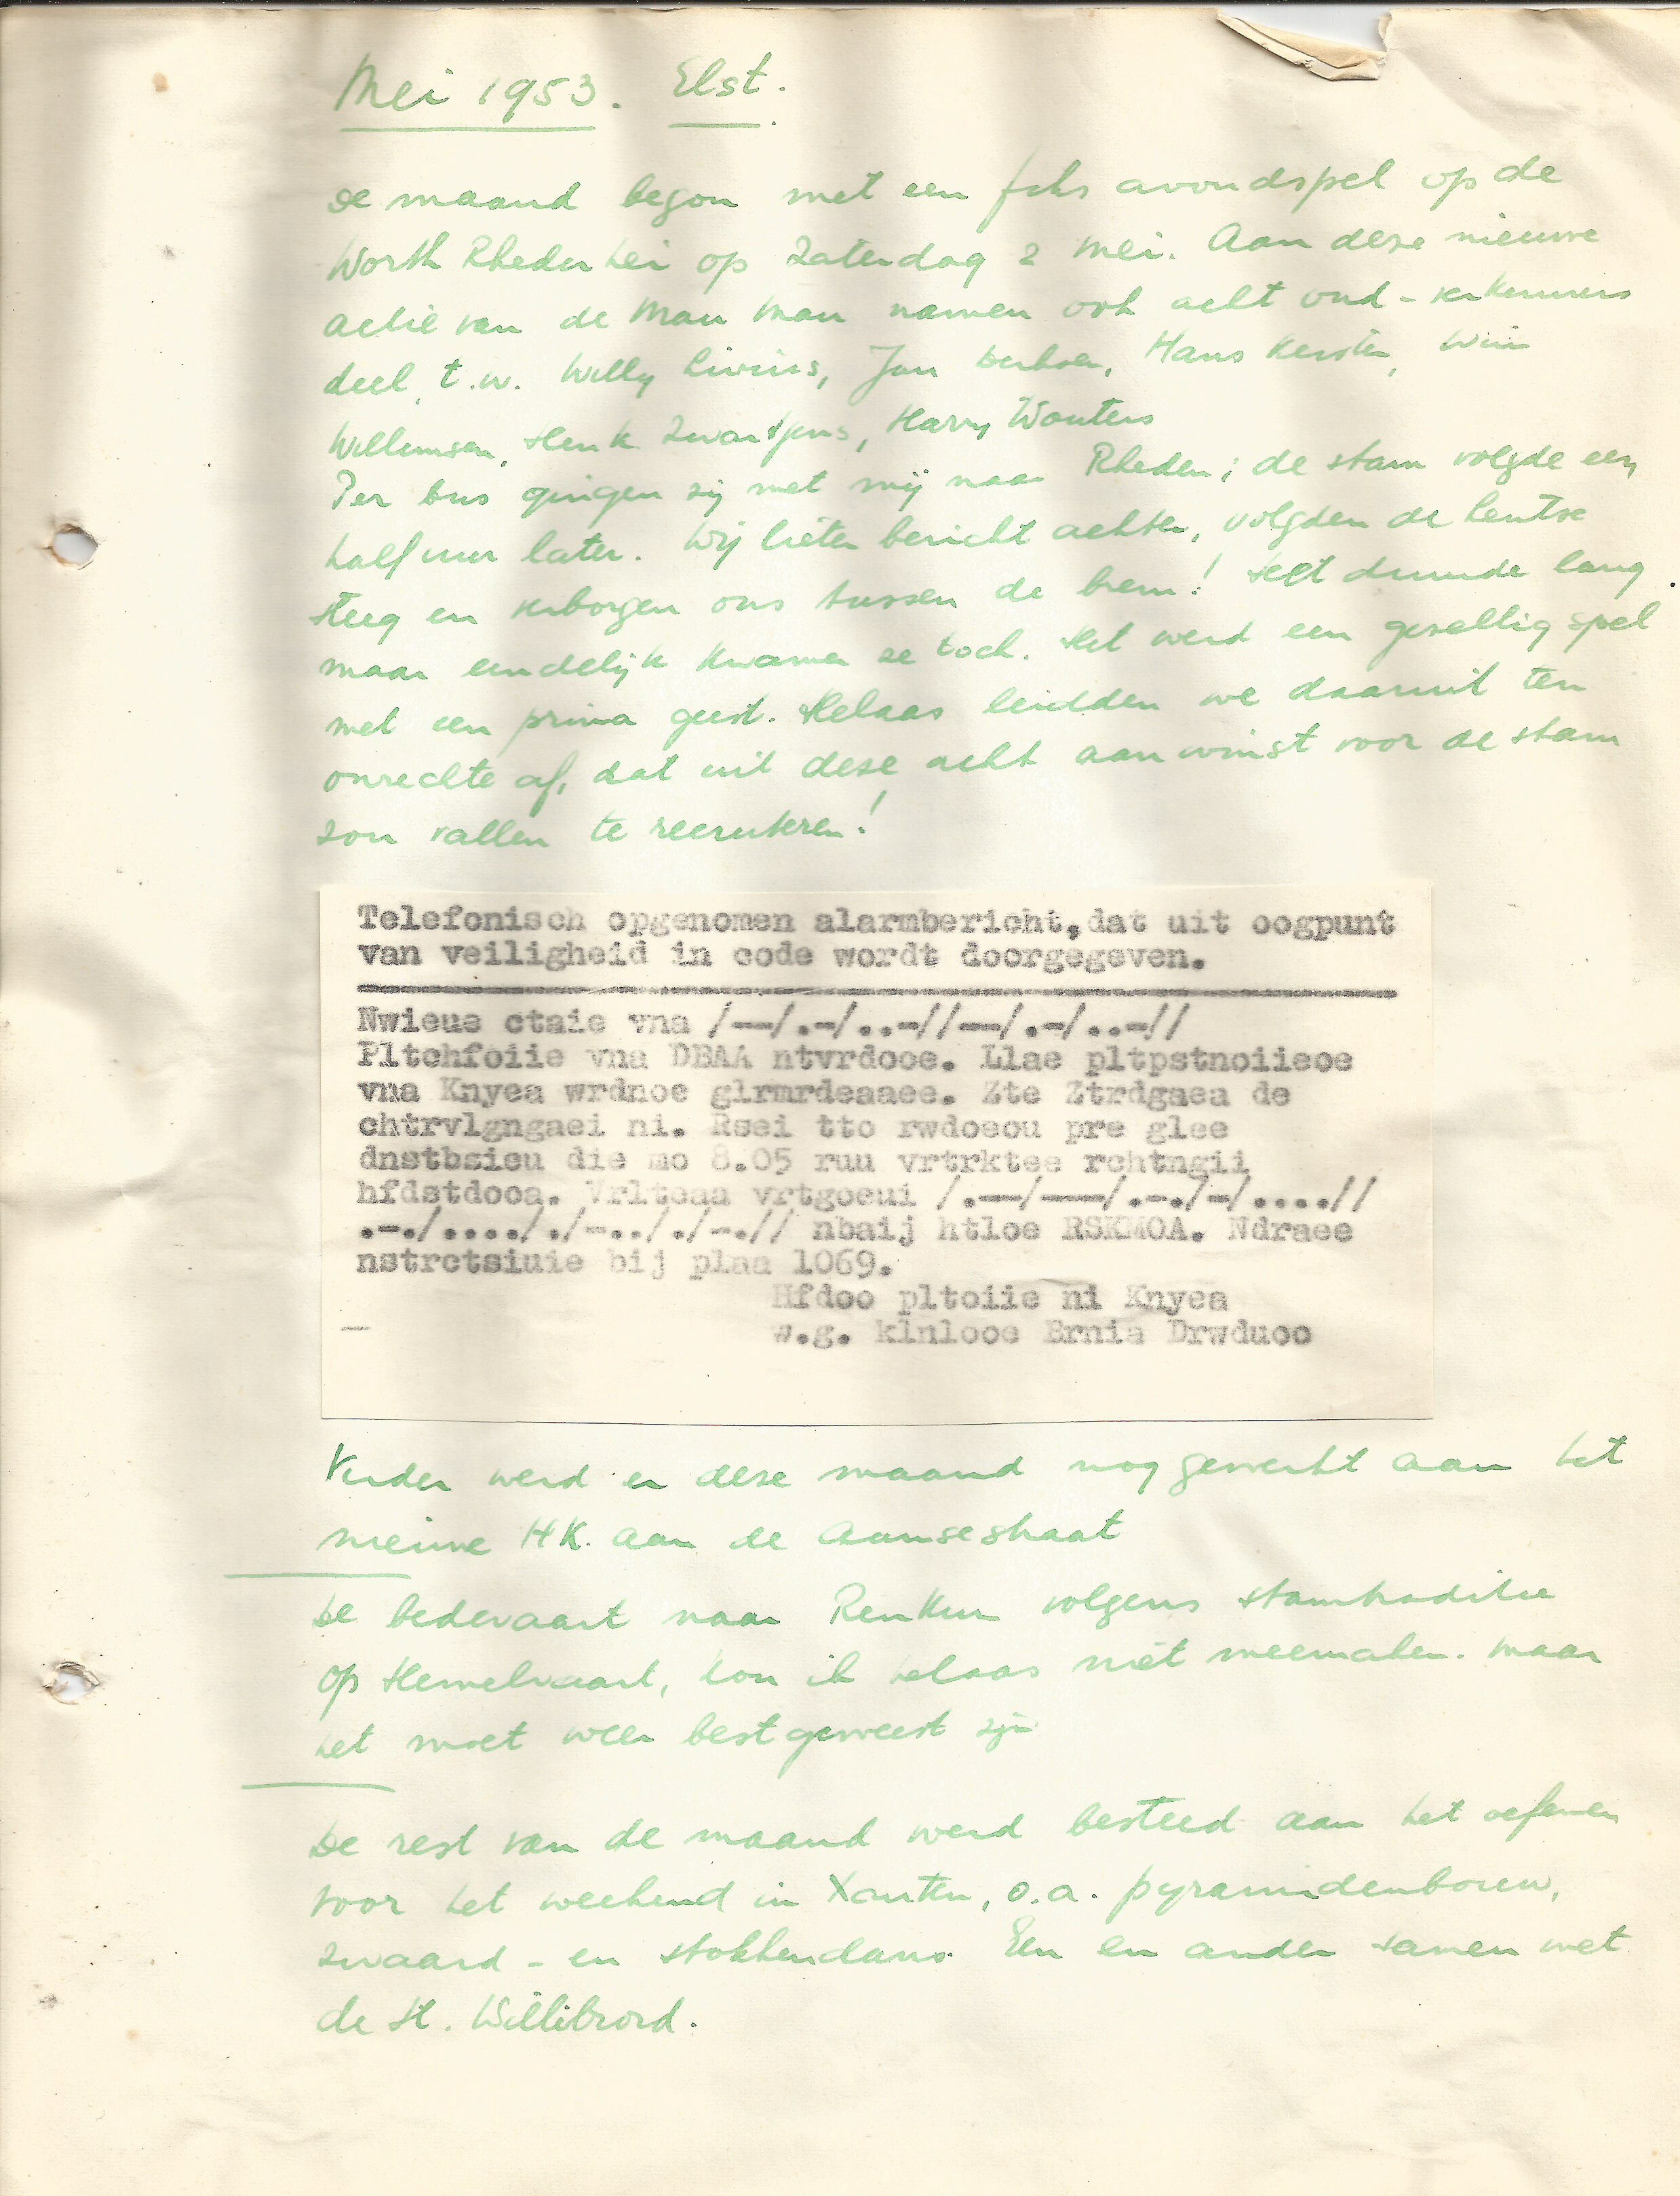 Mei 1953. Elst.
De maand begon met een fiks avondspel op de
Worth Rheder hei op Zaterdag 2 Mei. Aan deze nieuwe
actie van de Mau Mau namen ook acht oud-verkenners
deel, t.w. Willy Hans Kersten, Wim
Willemsen, Henk Zwartjens, Harry Wouters
Per bus gingen zij met mij naar Rheden; de stam volgde een
half uur later. Wij lieten bericht achter, volgden de
steeg en verborgen ons tussen de brem! Het duurde lang
maar eindelijk kwamen ze toch. Het werd een gezellig spel
met een prima geest. Helaas leidden we daaruit ten
onrechte af, dat uit deze acht aanwinst voor de stam
zou vallen te recruteren!
Telefonisch opgenomen alarmbericht,dat uit oogpunt
van veiligheid in code wordt doorgegeven.
Nwieue ctaie vna /--/.-/..-//--/.-/..-//
Pltchfoiie vna DBAA ntvrdooe. Llae pltpstnoiieoe
vna Knyea wrdnoe glrmrdeaaee. Zte Ztrdgaea de
chtrvlgngaei ni. Rsei tto rwdoeou pre glee
dnstbsieu die mo 8.05 ruu vrtrktee rchtngii
hfdstdooa. Vrltoaa vrtgoeui /.--/---/.-./-/....//
.-./...././-.././-.// nbaij htloe RSKMOA. Ndraee
nstrctsiuie bij plaa 1069.
Hfdoo pltoiie ni Knyea
w.g. klnlooe Ernia Drwduoo
Verder werd er deze maand nog gewerkt aan het
nieuwe HK. aan de Aamsestraat
De bedevaart naar Renkum volgens stamtraditie
op Hemelvaart, kon ik helaas niet meemaken. Maar
het moet weer best geweest zijn
De rest van de maand werd besteed aan het oefenen
voor het weekend in Xanten, o.a. pyramidenbouw,
zwaard- en stokkendans. Een en ander samen met
de St. Willibrord.